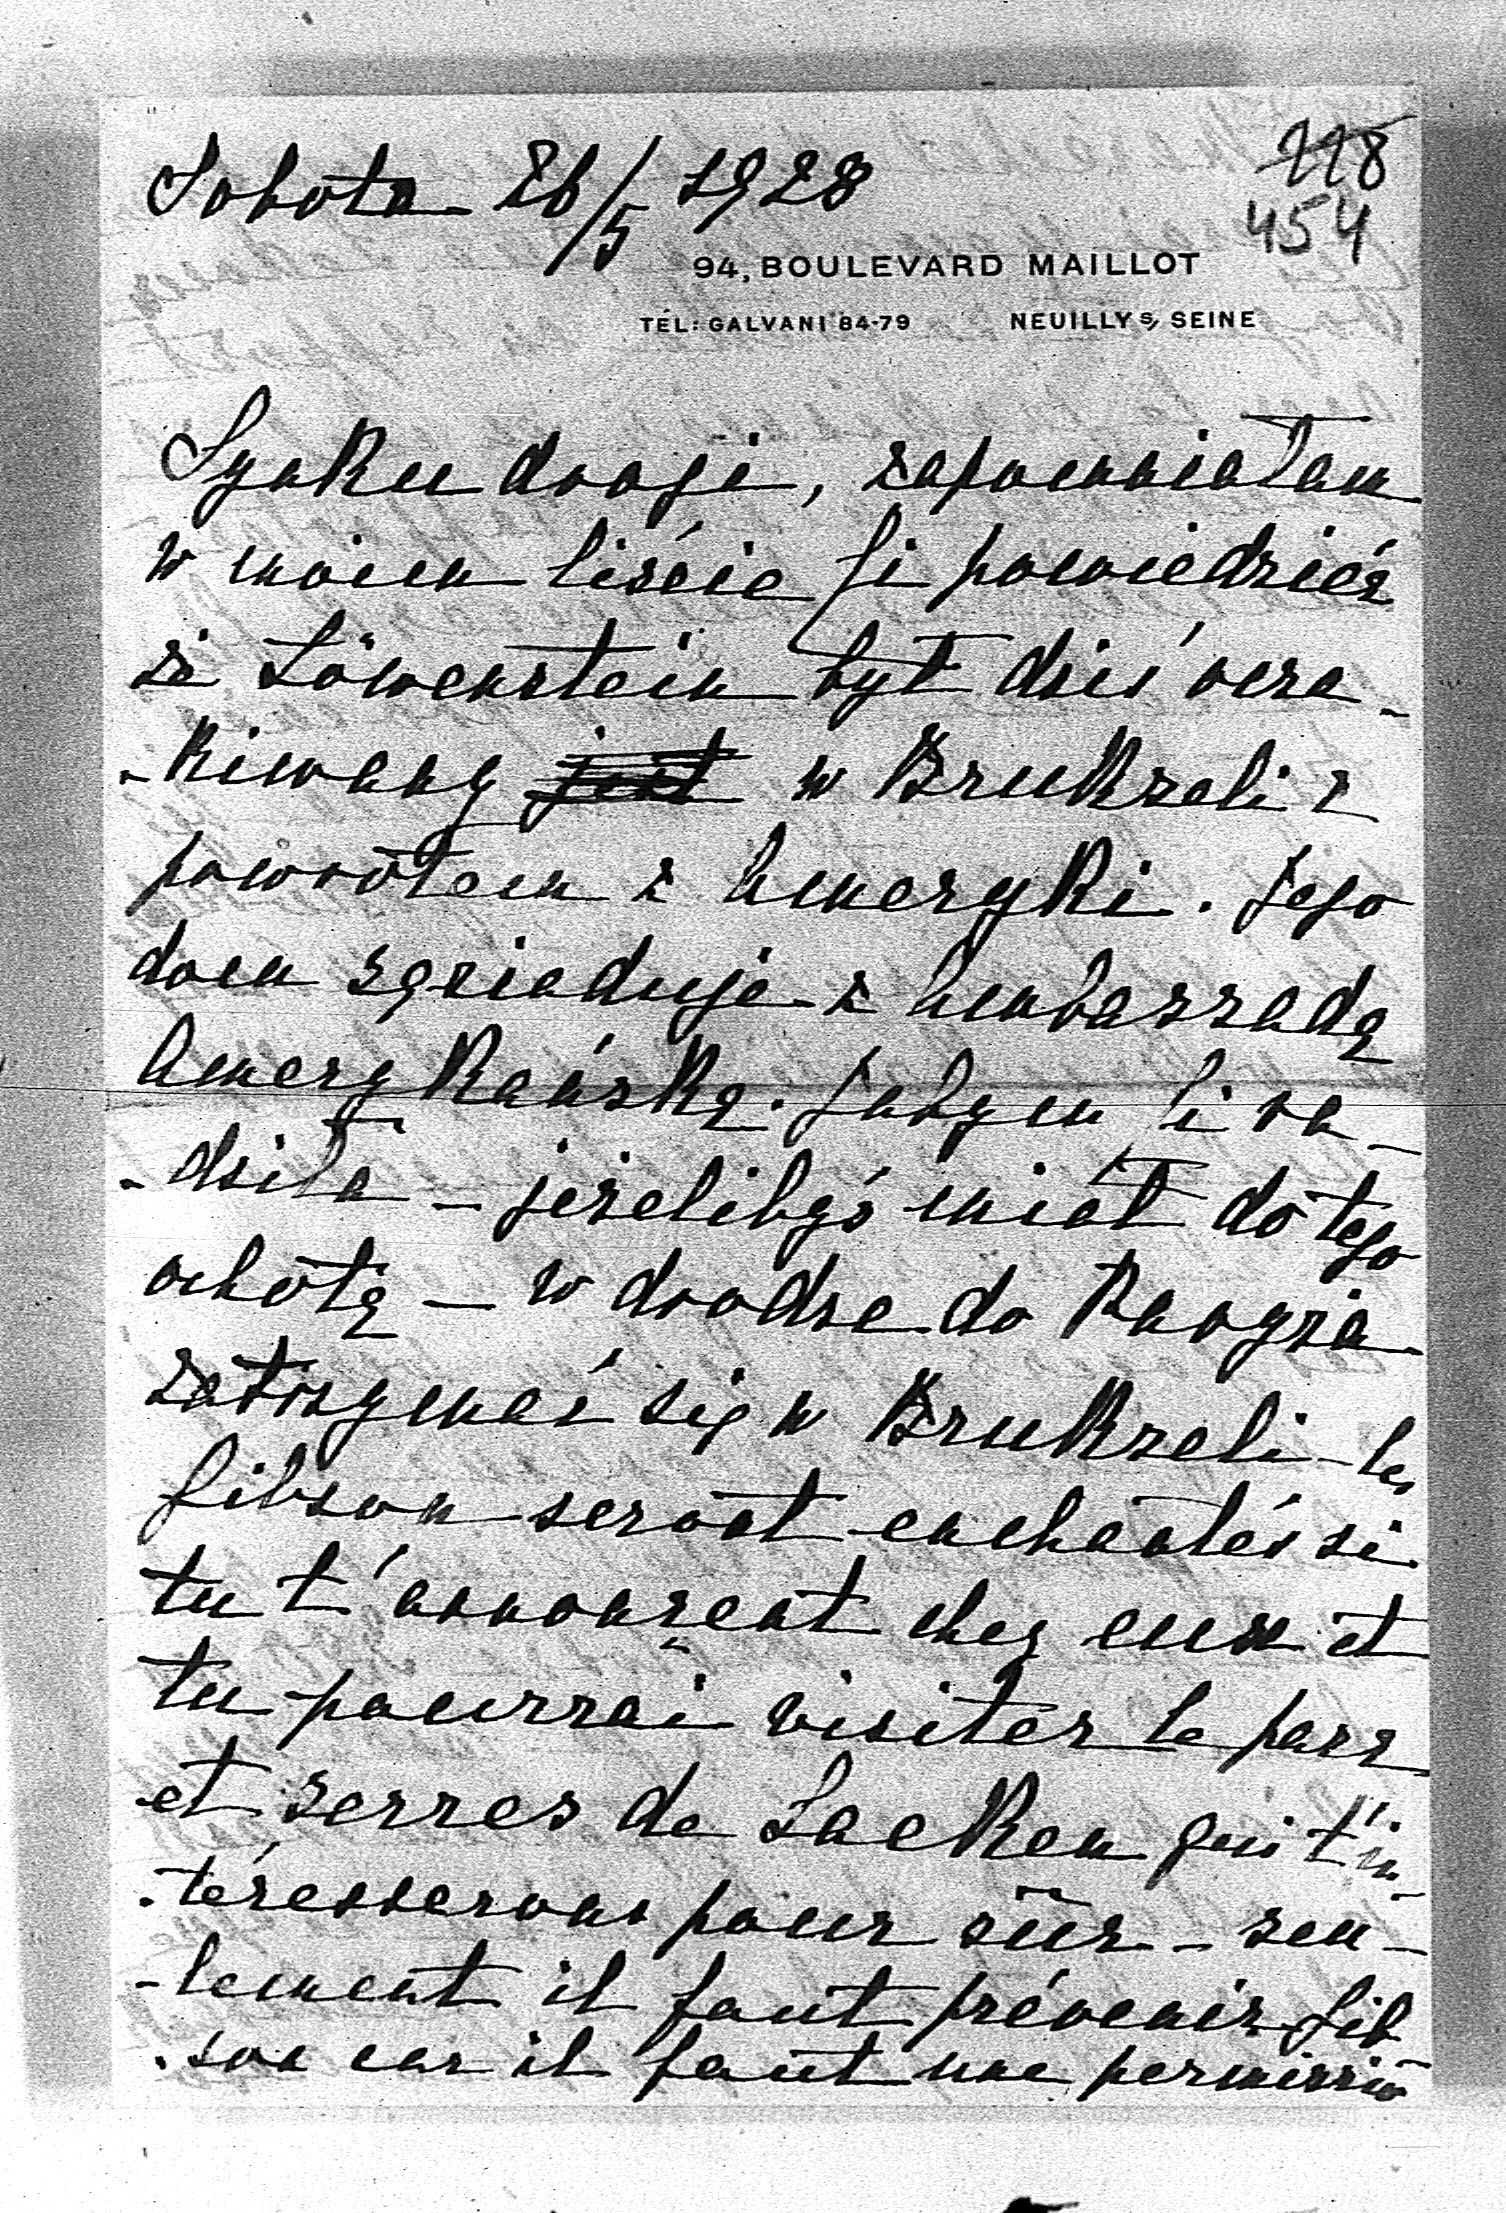 Sobota 26/5 1928
118
454
94, BOULEVARD MAILLOT
TÉL: GALVANI 84-79 NEUILLY S/ SEINE
Synku drogi, zapomniałam
w moim liście Ci powiedzieć
że Löwenstein był dziś ocze-
-kiwany jest w Brukseli z
powrotem z Ameryki. Jego
dom sąsiaduje z Ambassadą
Amerykańską. Jabym Ci ra-
-dziła – jeżelibyś miał do tego
ochotę – w drodze do Paryża
zatrzymać się w Brukseli – les
Gibson seront enchantés si
tu t'annonçent chez eux et
tu pourrai visiter le parc
et serres de Laeken qui t'in-
-téresserons pour sûr – seu-
-lement il faut prévenir Gib
-son car il faut une permission